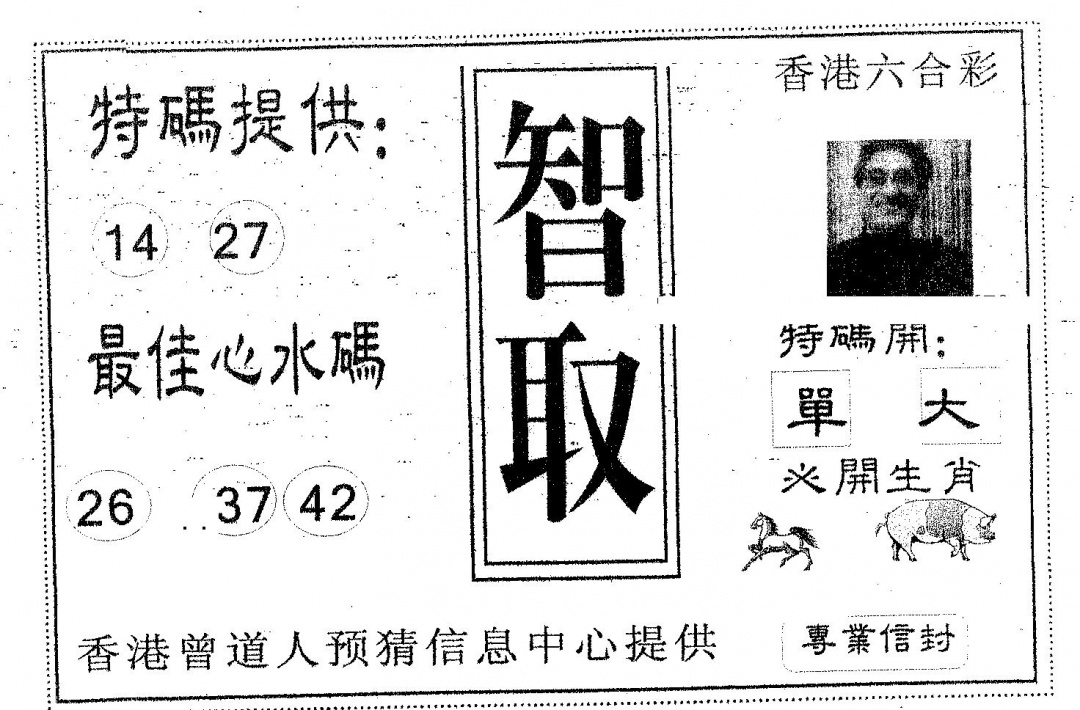 特碼提供：
14 27
最佳心水碼
26 37 42
智取
香港六合彩
特碼開：
單 大
必開生肖
香港曾道人预猜信息中心提供
專業信封